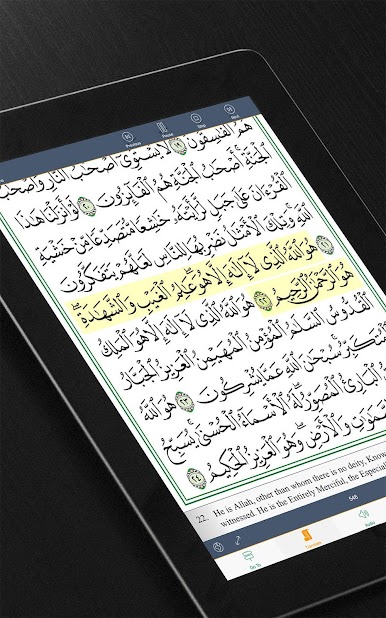 Previous Pause Stop Next
هُمُ ٱلْفَٰسِقُونَ ١٩ لَا يَسْتَوِىٓ أَصْحَٰبُ ٱلنَّارِ وَأَصْحَابُ
ٱلْجَنَّةِ أَصْحَٰبُ ٱلْجَنَّةِ هُمُ ٱلْفَآئِزُونَ ٢٠ لَوْ أَنزَلْنَا هَٰذَا
ٱلْقُرْءَانَ عَلَىٰ جَبَلٍ لَّرَأَيْتَهُۥ خَٰشِعًا مُّتَصَدِّعًا مِّنْ خَشْيَةِ
ٱللَّهِ وَتِلْكَ ٱلْأَمْثَٰلُ نَضْرِبُهَا لِلنَّاسِ لَعَلَّهُمْ يَتَفَكَّرُونَ
٢١ هُوَ ٱللَّهُ ٱلَّذِى لَآ إِلَٰهَ إِلَّا هُوَ عَٰلِمُ ٱلْغَيْبِ وَٱلشَّهَٰدَةِ
هُوَ ٱلرَّحْمَٰنُ ٱلرَّحِيمُ ٢٢ هُوَ ٱللَّهُ ٱلَّذِى لَآ إِلَٰهَ إِلَّا هُوَ ٱلْمَلِكُ
ٱلْقُدُّوسُ ٱلسَّلَٰمُ ٱلْمُؤْمِنُ ٱلْمُهَيْمِنُ ٱلْعَزِيزُ ٱلْجَبَّارُ
تَكَبِّرُ سُبْحَٰنَ ٱللَّهِ عَمَّا يُشْرِكُونَ ٢٣ هُوَ ٱللَّهُ
ٱلْبَارِئُ ٱلْمُصَوِّرُ لَهُ ٱلْأَسْمَآءُ ٱلْحُسْنَىٰ يُسَبِّحُ
مَٰوَٰتِ وَٱلْأَرْضِ وَهُوَ ٱلْعَزِيزُ ٱلْحَكِيمُ ٢٤
22. He is Allah, other than whom there is no deity, Know
witnessed. He is the Entirely Merciful, the Especial
545
Go To Translate Audio